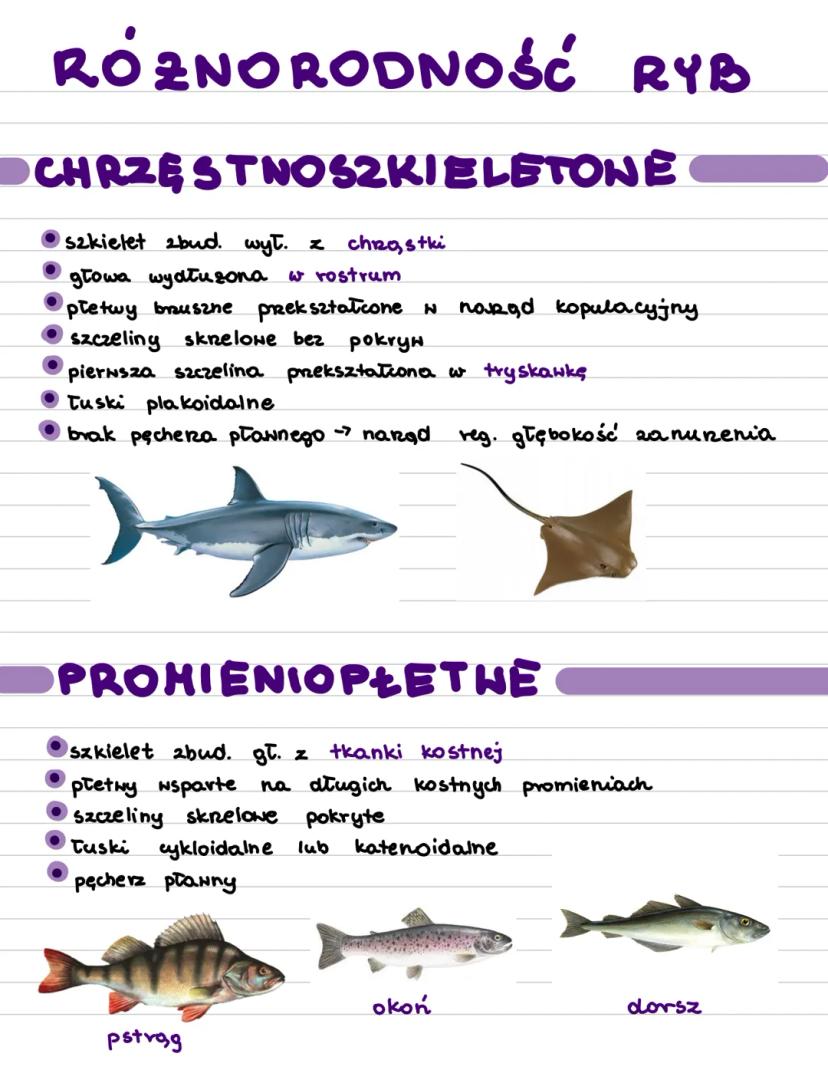 RÓŻNORODNOŚĆ RYB
CHRZĘSTNOSZKIELETOWE
szkielet zbud. wył. z chrząstki
głowa wydłużona w rostrum
płetwy brzuszne przekształcone w narząd kopulacyjny
szczeliny skrzelowe bez pokryw
pierwsza szczelina przekształcona w tryskawkę
łuski plakoidalne
brak pęcherza pławnego → narząd reg. głębokość zanurzenia
PROMIENIOPŁETWE
szkielet zbud. gł. z tkanki kostnej
płetwy wsparte na długich kostnych promieniach
szczeliny skrzelowe pokryte
łuski cykloidalne lub katenoidalne
pęcherz pławny
okoń
dorsz
pstrąg